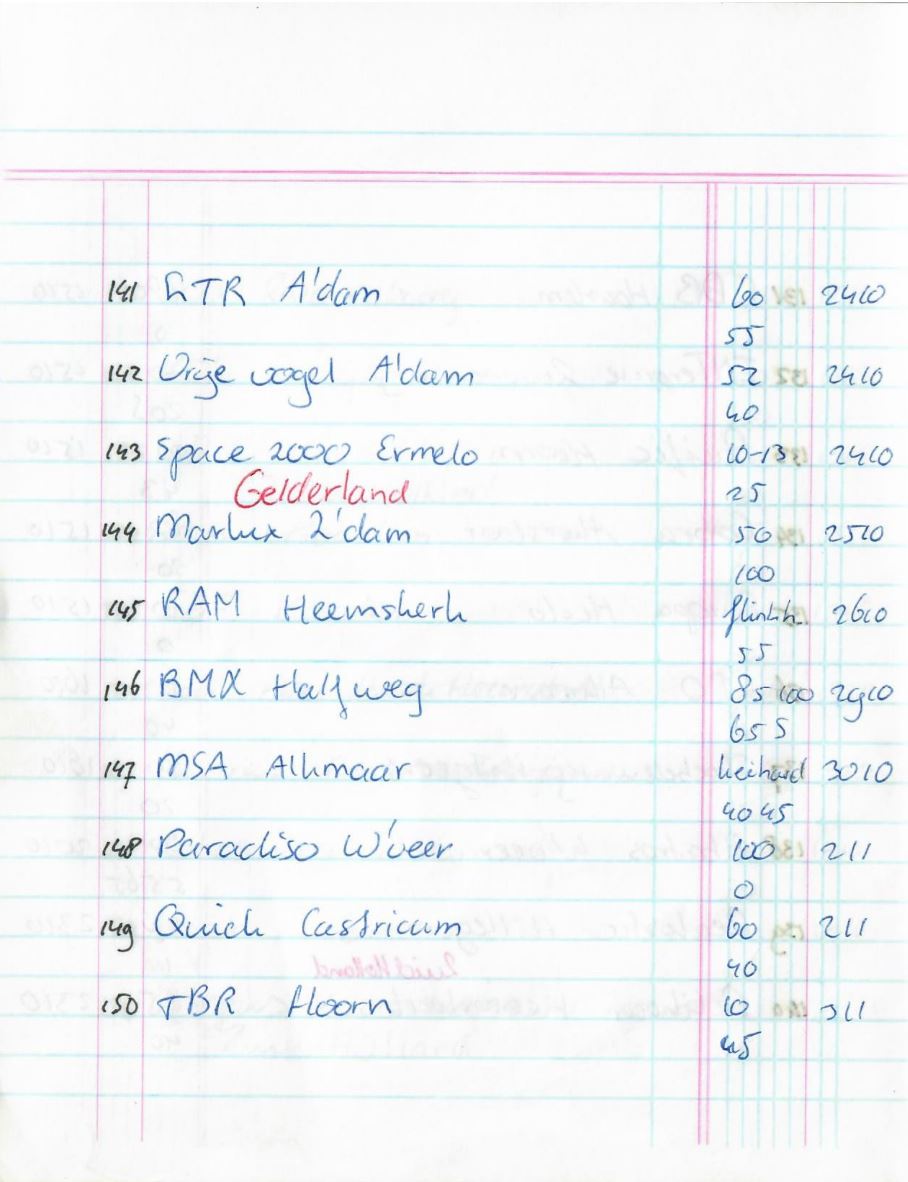 141 LTR A'dam 60 2410
55
142 Vrije vogel A'dam 52 2410
40
143 Space 2000 Ermelo 10-15 2410
Gelderland 25
144 Marlux Z'dam 50 2510
100
145 RAM Heemskerk flink 2610
55
146 BMX Halfweg 85 100 2910
65 5
147 MSA Alkmaar keihard 3010
40 45
148 Paradiso W'veer 100 211
0
149 Quick Castricum 60 211
40
150 TBR Hoorn 10 311
45